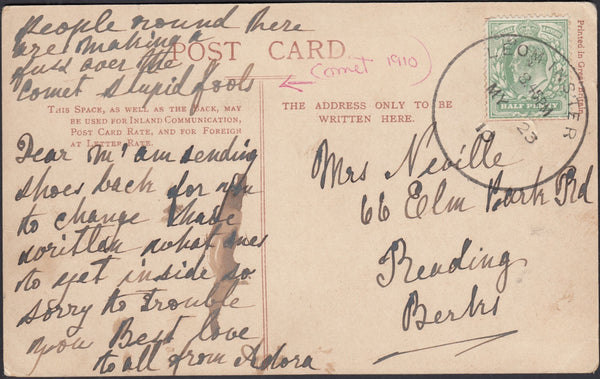 People round here
are making a
fuss over the
Comet stupid fools
POST CARD
Comet 1910
THIS SPACE, AS WELL AS THE BACK, MAY
BE USED FOR INLAND COMMUNICATION,
POST CARD RATE, AND FOR FOREIGN
AT LETTER RATE.
Dear M' am sending
shoes back for you
to change I have
written what ones
to get inside so
sorry to trouble
you Best love
to all from Adora
THE ADDRESS ONLY TO BE
WRITTEN HERE.
Mrs Neville
66 Elm Park Rd
Reading
Berks
Printed in Great Britain
HALF PENNY
LEOMINSTER
MY 23
10